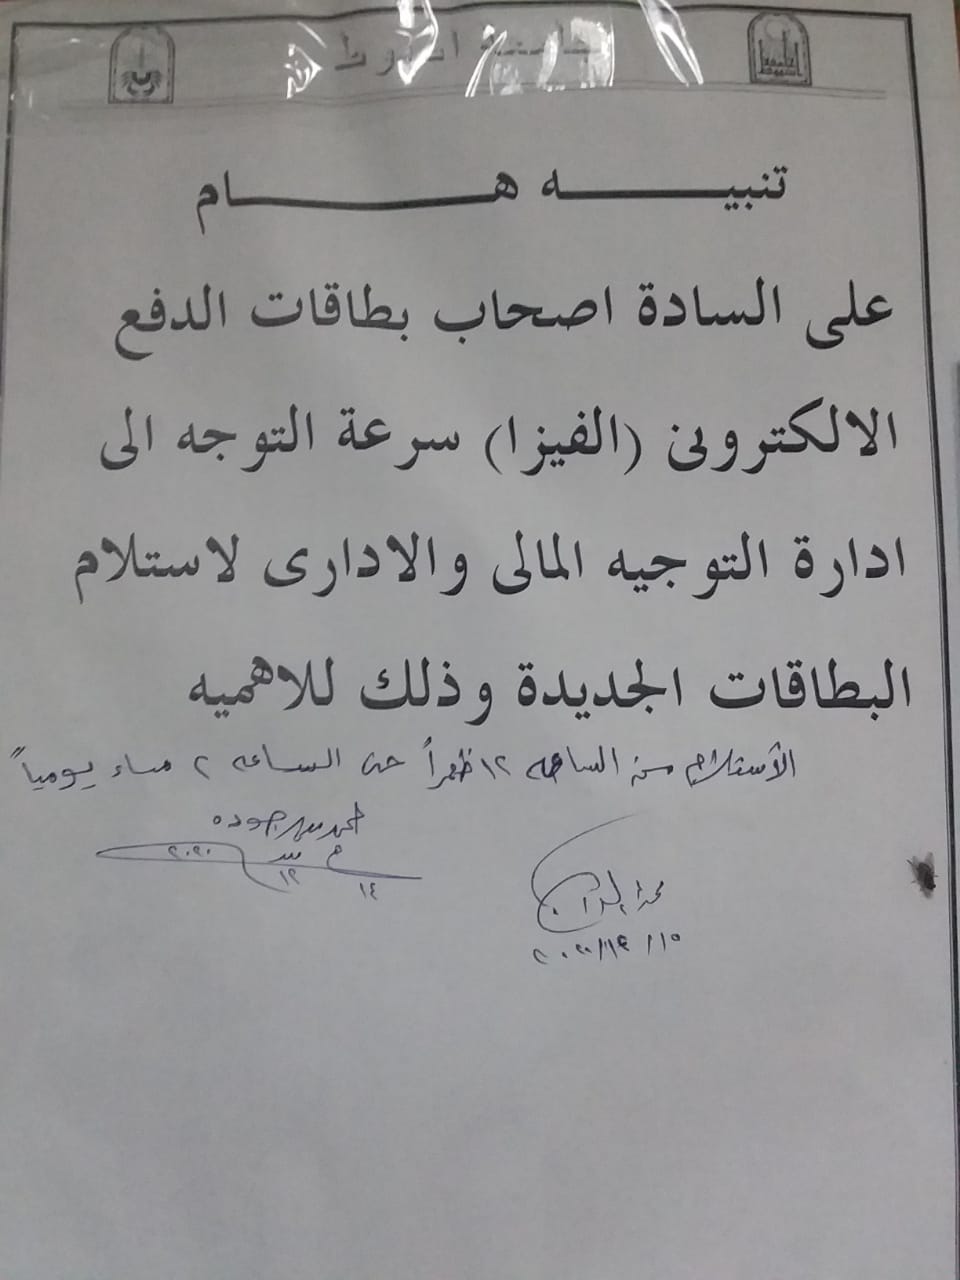 جامعة اسيوط
تنبيـــــــه هـــــــــام
على السادة اصحاب بطاقات الدفع
الالكترونى (الفيزا) سرعة التوجه الى
ادارة التوجيه المالى والادارى لاستلام
البطاقات الجديدة وذلك للاهميه
الأستلام من الساعه ١٢ ظهراً حتى الساعه ٢ مساء يومياً
جوده
٢٠٢٠
١٢
١٤